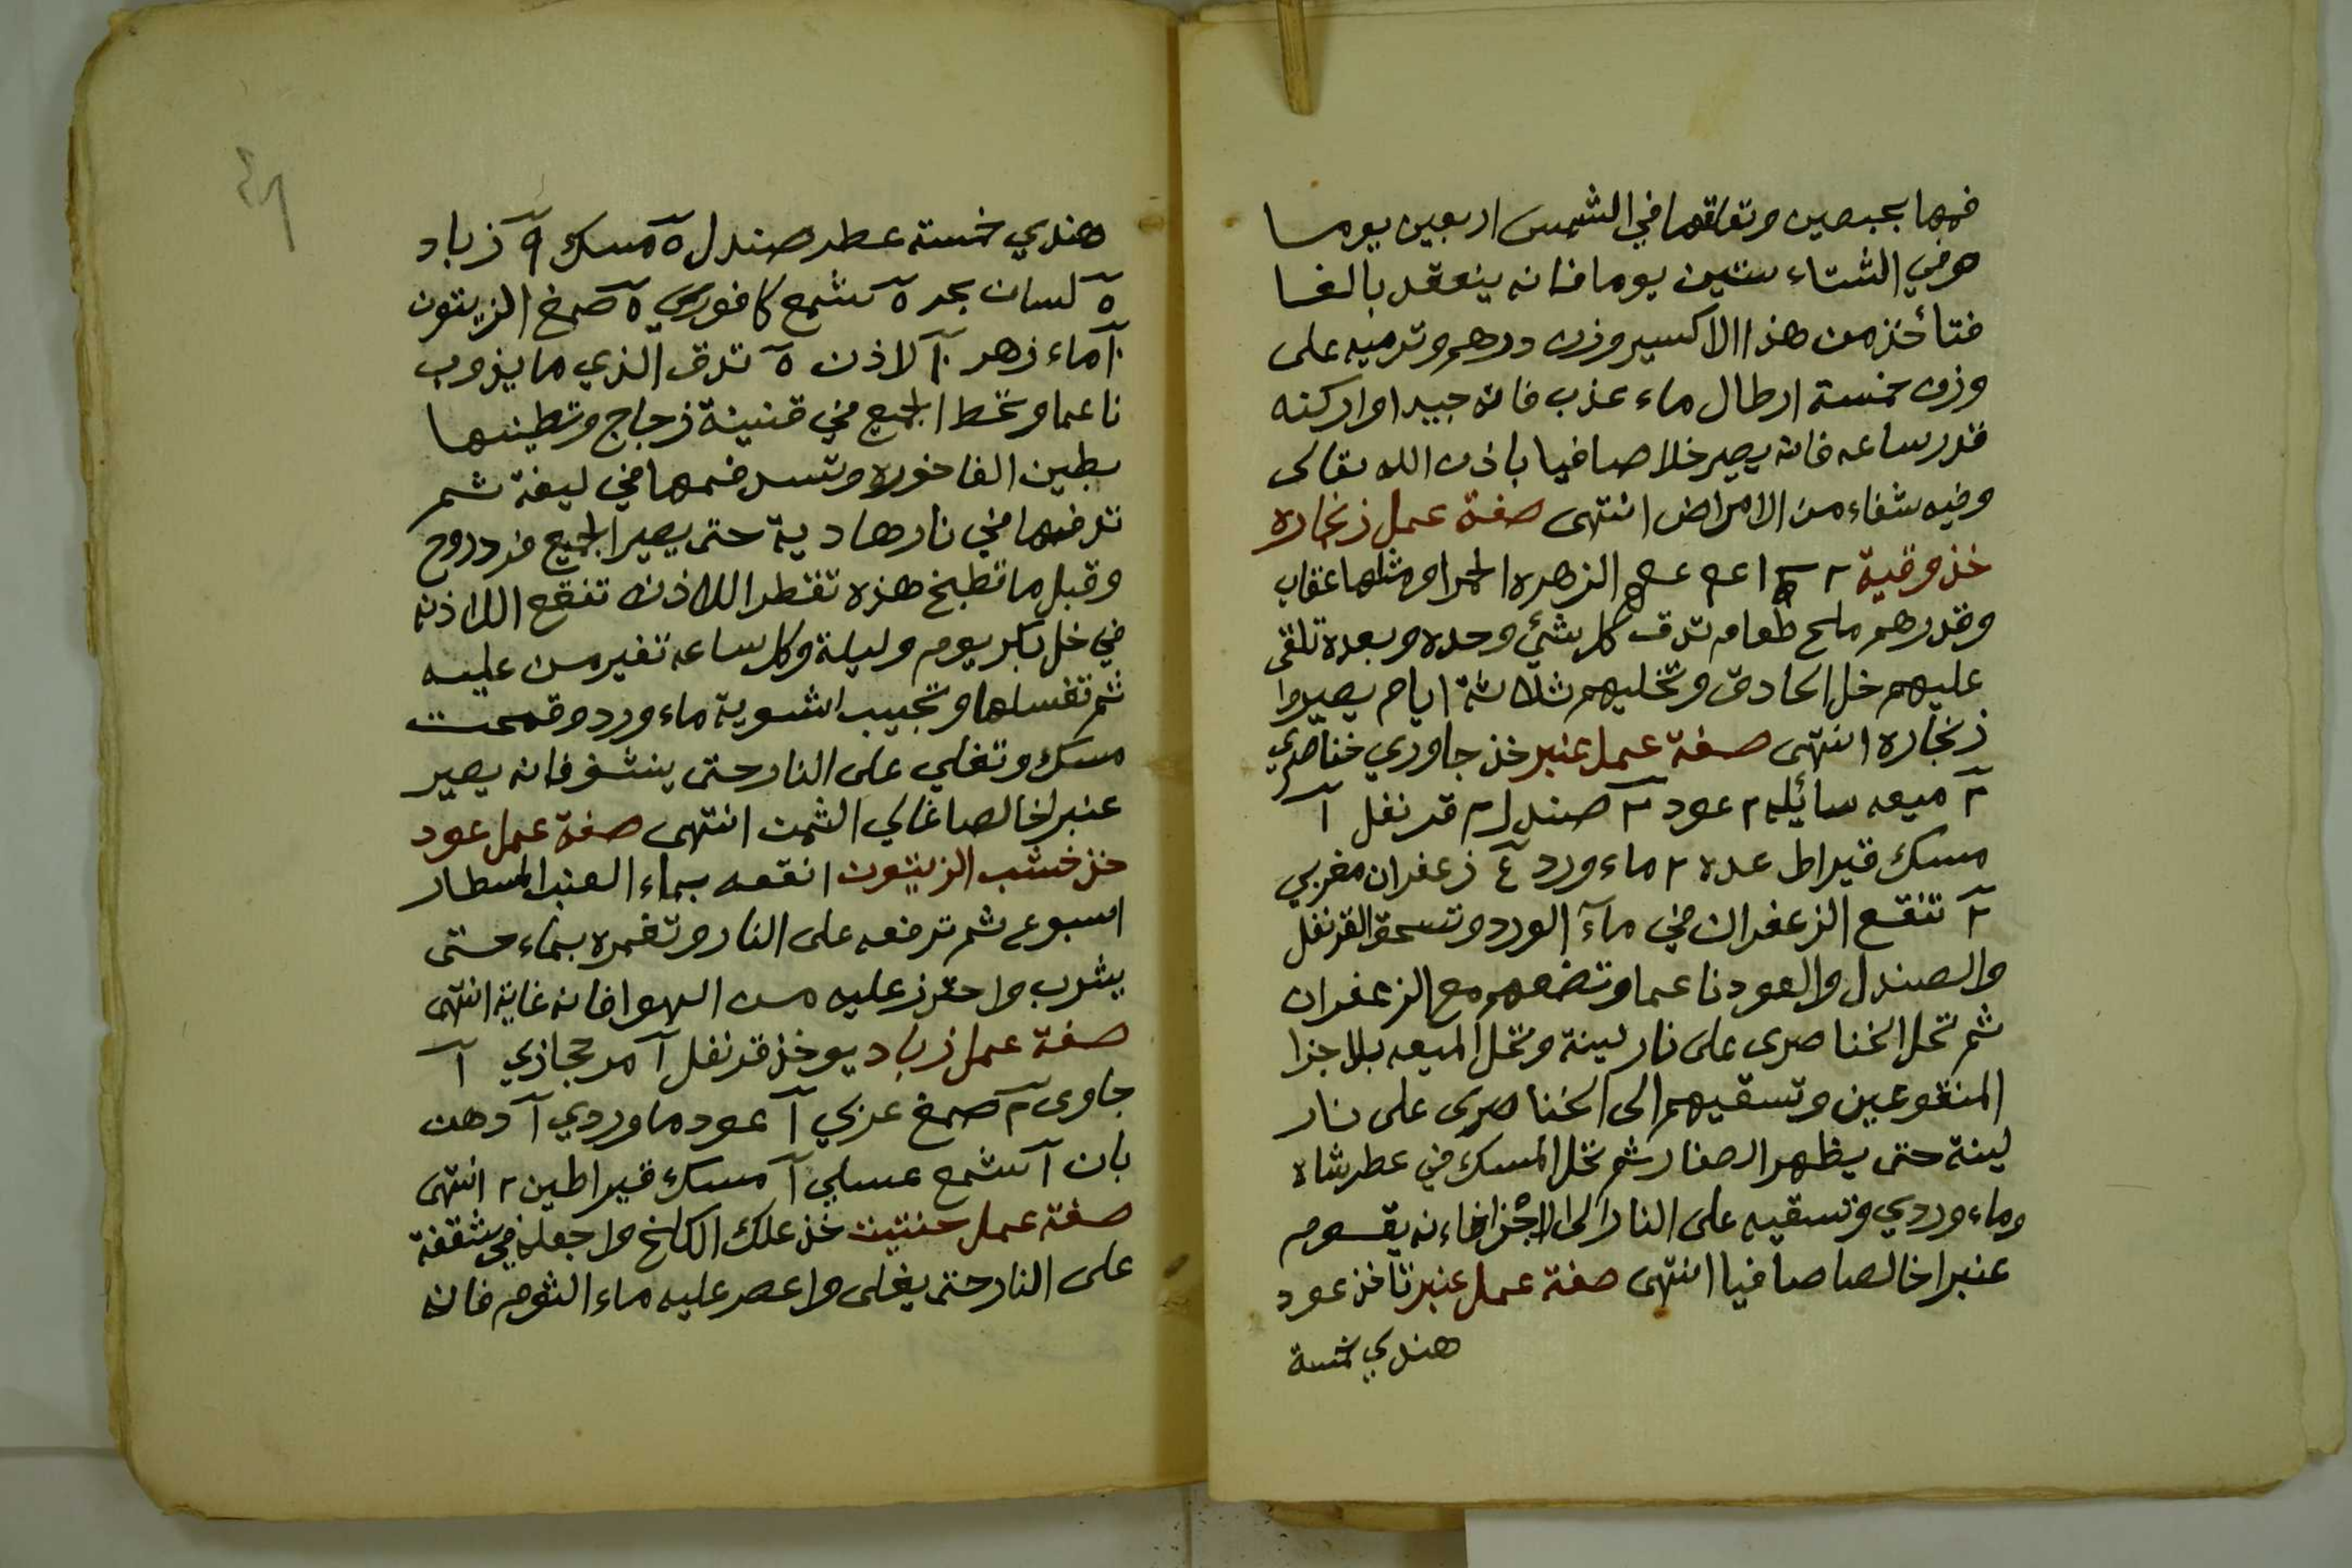 فمها بجبصين وتعلقها في الشمس اربعين يوما
هو في الشتاء ستين يوما فانه ينعقد بالغا
فتأخذ من هذا الاكسير وزن درهم وترميه على
وزن خمسة ارطال ماء عذب فانه جيدا واركنه
قدر ساعه فانه يصير خلا صافيا باذن الله تعالى
وفيه شفاء من الامراض انتهى صفة عمل زنجاره
خذ وقية ٢ الزهره الحمرا ومثلها عقاب
وقد درهم ملح طعام تدق كل شئ وحده وبعده تلقى
عليهم خل الحادق وتخليهم ثلاثة ايام يصيروا
زنجاره انتهى صفة عمل عنبر خذ جاوري خناصري
٢ ميعه سائله ٢ عود ٢ صندل ٢ قرنفل ١
مسك قيراط عده ٢ ماء ورد ٤ زعفران مغربي
٢ تنقع الزعفران في مآء الورد وتسحق القرنفل
والصندل والعود ناعما وتضعهم مع الزعفران
ثم تحل الخناصرى على نار لينة وتحل الميعه بلاجزا
المنقوعين وتسقيهم الى الخناصرى على نار
لينة حتى يظهر الصفار ثم تحل المسك في عطر شاه
وماء وردي وتسقيه على النار الى الاجزا فاءنه يقوم
عنبرا خالصا صافيا انتهى صفة عمل عنبر تاخذ عود
هندي خمسة
هندي خمسته عطر صندل ٥ مسك ٩ زباد
٥ لسان بحر ٥ شمع كافوري ٥ صمغ الزيتون
١٠ ماء زهر ١٠ لاذن ٥ تدق الذي ما يذوب
ناعما وتحط الجميع في قنينة زجاج وتطينها
بطين الفاخوره وتسد فمها في ليفة ثم
تدفنها في نار هادية حتى يصير الجميع فرد روح
وقبل ما تطبخ هذه تقطر اللاذن تنقع اللاذن
في خل بكر يوم وليلة وكل ساعه تغير من عليه
ثم تغسلها وتجيب اشوية ماء ورد وقمحت
مسك وتغلي على النار حتى ينشف فانه يصير
عنبرا خالصا غالي الثمن انتهى صفة عمل عود
خذ خشب الزيتون انقعه بماء العنب المسطار
اسبوع ثم ترفعه على النار وتغمره بماء حتى
يشرب واحترز عليه من الهوا فانه غاية انتهى
صفة عمل زباد يوخذ قرنفل ١ مر حجازي ١
جاوى ٢ صمغ عربي ١ عود ماوردي ١ دهن
بان ١ شمع عسلي ١ مسك قيراطين ٢ انتهى
صفة عمل حنتيت خذ علك الكلخ واجعله في شقفة
على النار حتى يغلى واعصر عليه ماء الثوم فانه